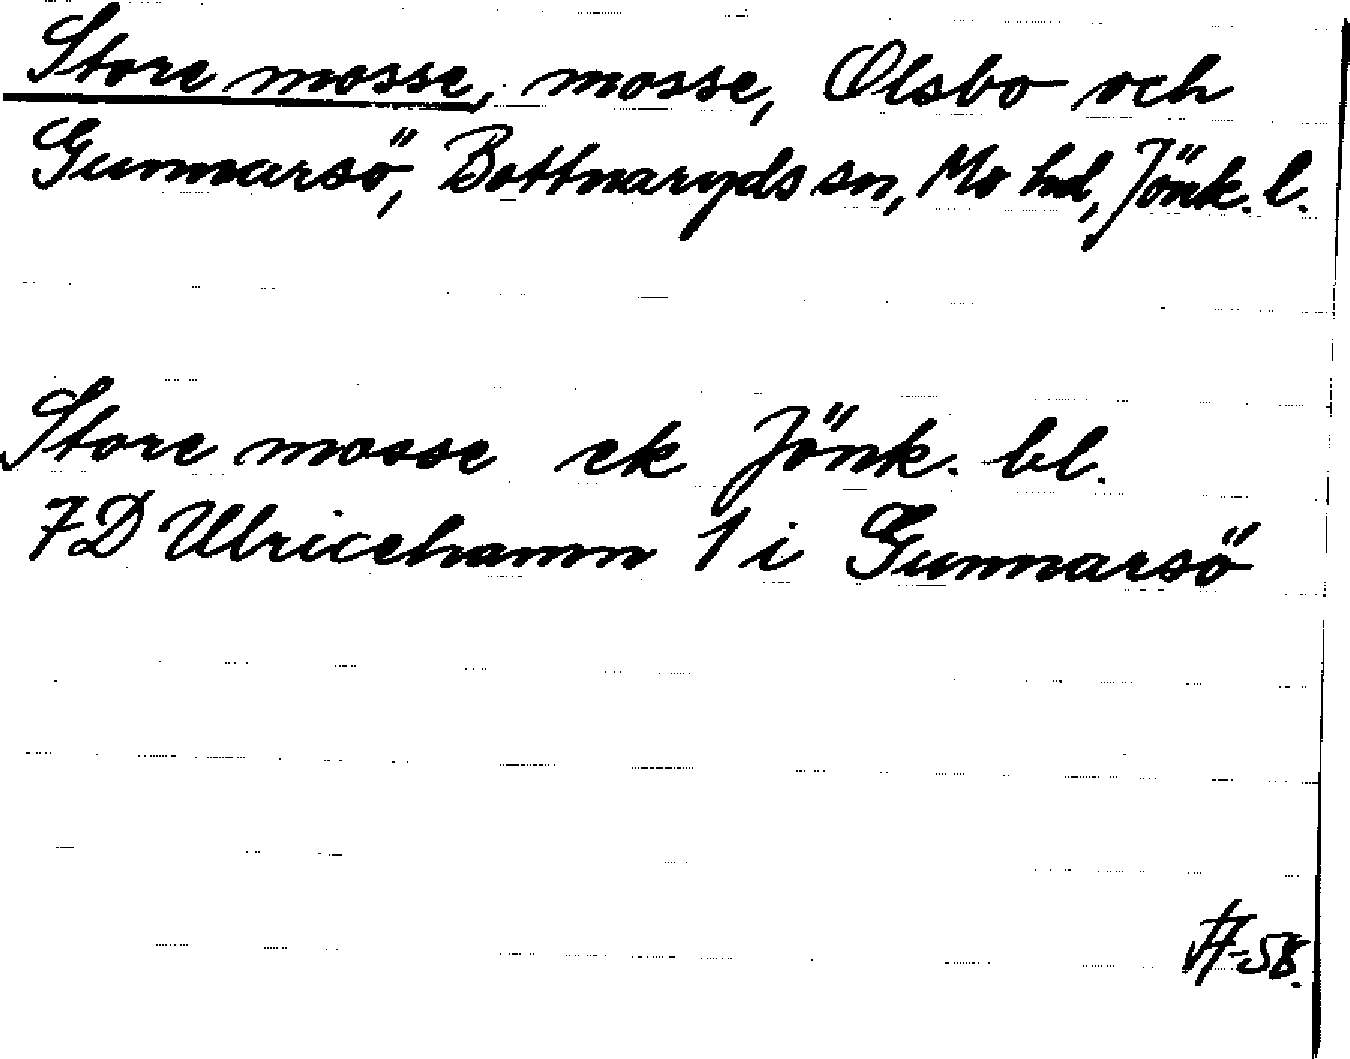 Store mosse, mosse, Olsbo och
Gunnarsö, Bottnaryds sn, Mo hd, Jönk. l.
Store mosse ek Jönk. bl.
7D Ulricehamn 1 i Gunnarsö
-58.